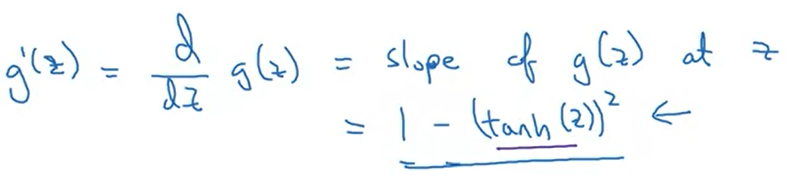 g'(z) = d/dz g(z) = slope of g(z) at z
= 1 - (tanh(z))² ←